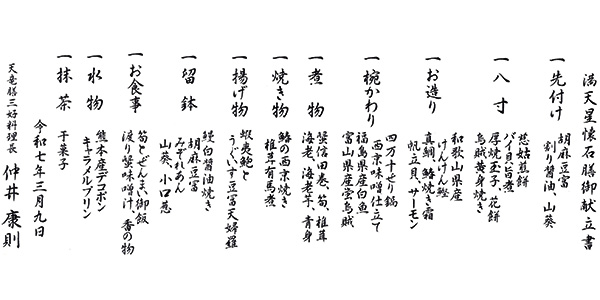 満天星懐石膳御献立書
一 先付け
胡麻豆富
割り醤油、山葵
一 八寸
慈姑煎餅
バイ貝旨煮
厚焼玉子、花餅
烏賊黄身焼き
一 お造り
和歌山県産
けんけん鰹
真鯛、鰆焼き霜
帆立貝、サーモン
一 椀かわり
四万十せり鍋
西京味噌仕立て
福島県産白魚
富山県産蛍烏賊
一 煮物
蟹信田巻、筍、椎茸
海老、海老芋、青身
一 焼き物
鰆の西京焼き
椎茸有馬煮
一 揚げ物
蝦夷鮑と
うぐいす豆富天婦羅
一 留鉢
鰹白醤油焼き
胡麻豆富
みぞれあん
山葵、小口葱
一 お食事
筍とぜんまい御飯
渡り蟹味噌汁、香の物
一 水物
熊本産デコポン
キャラメルプリン
一 抹茶
干菓子
令和七年三月九日
天竜膳三好料理長 仲井康則